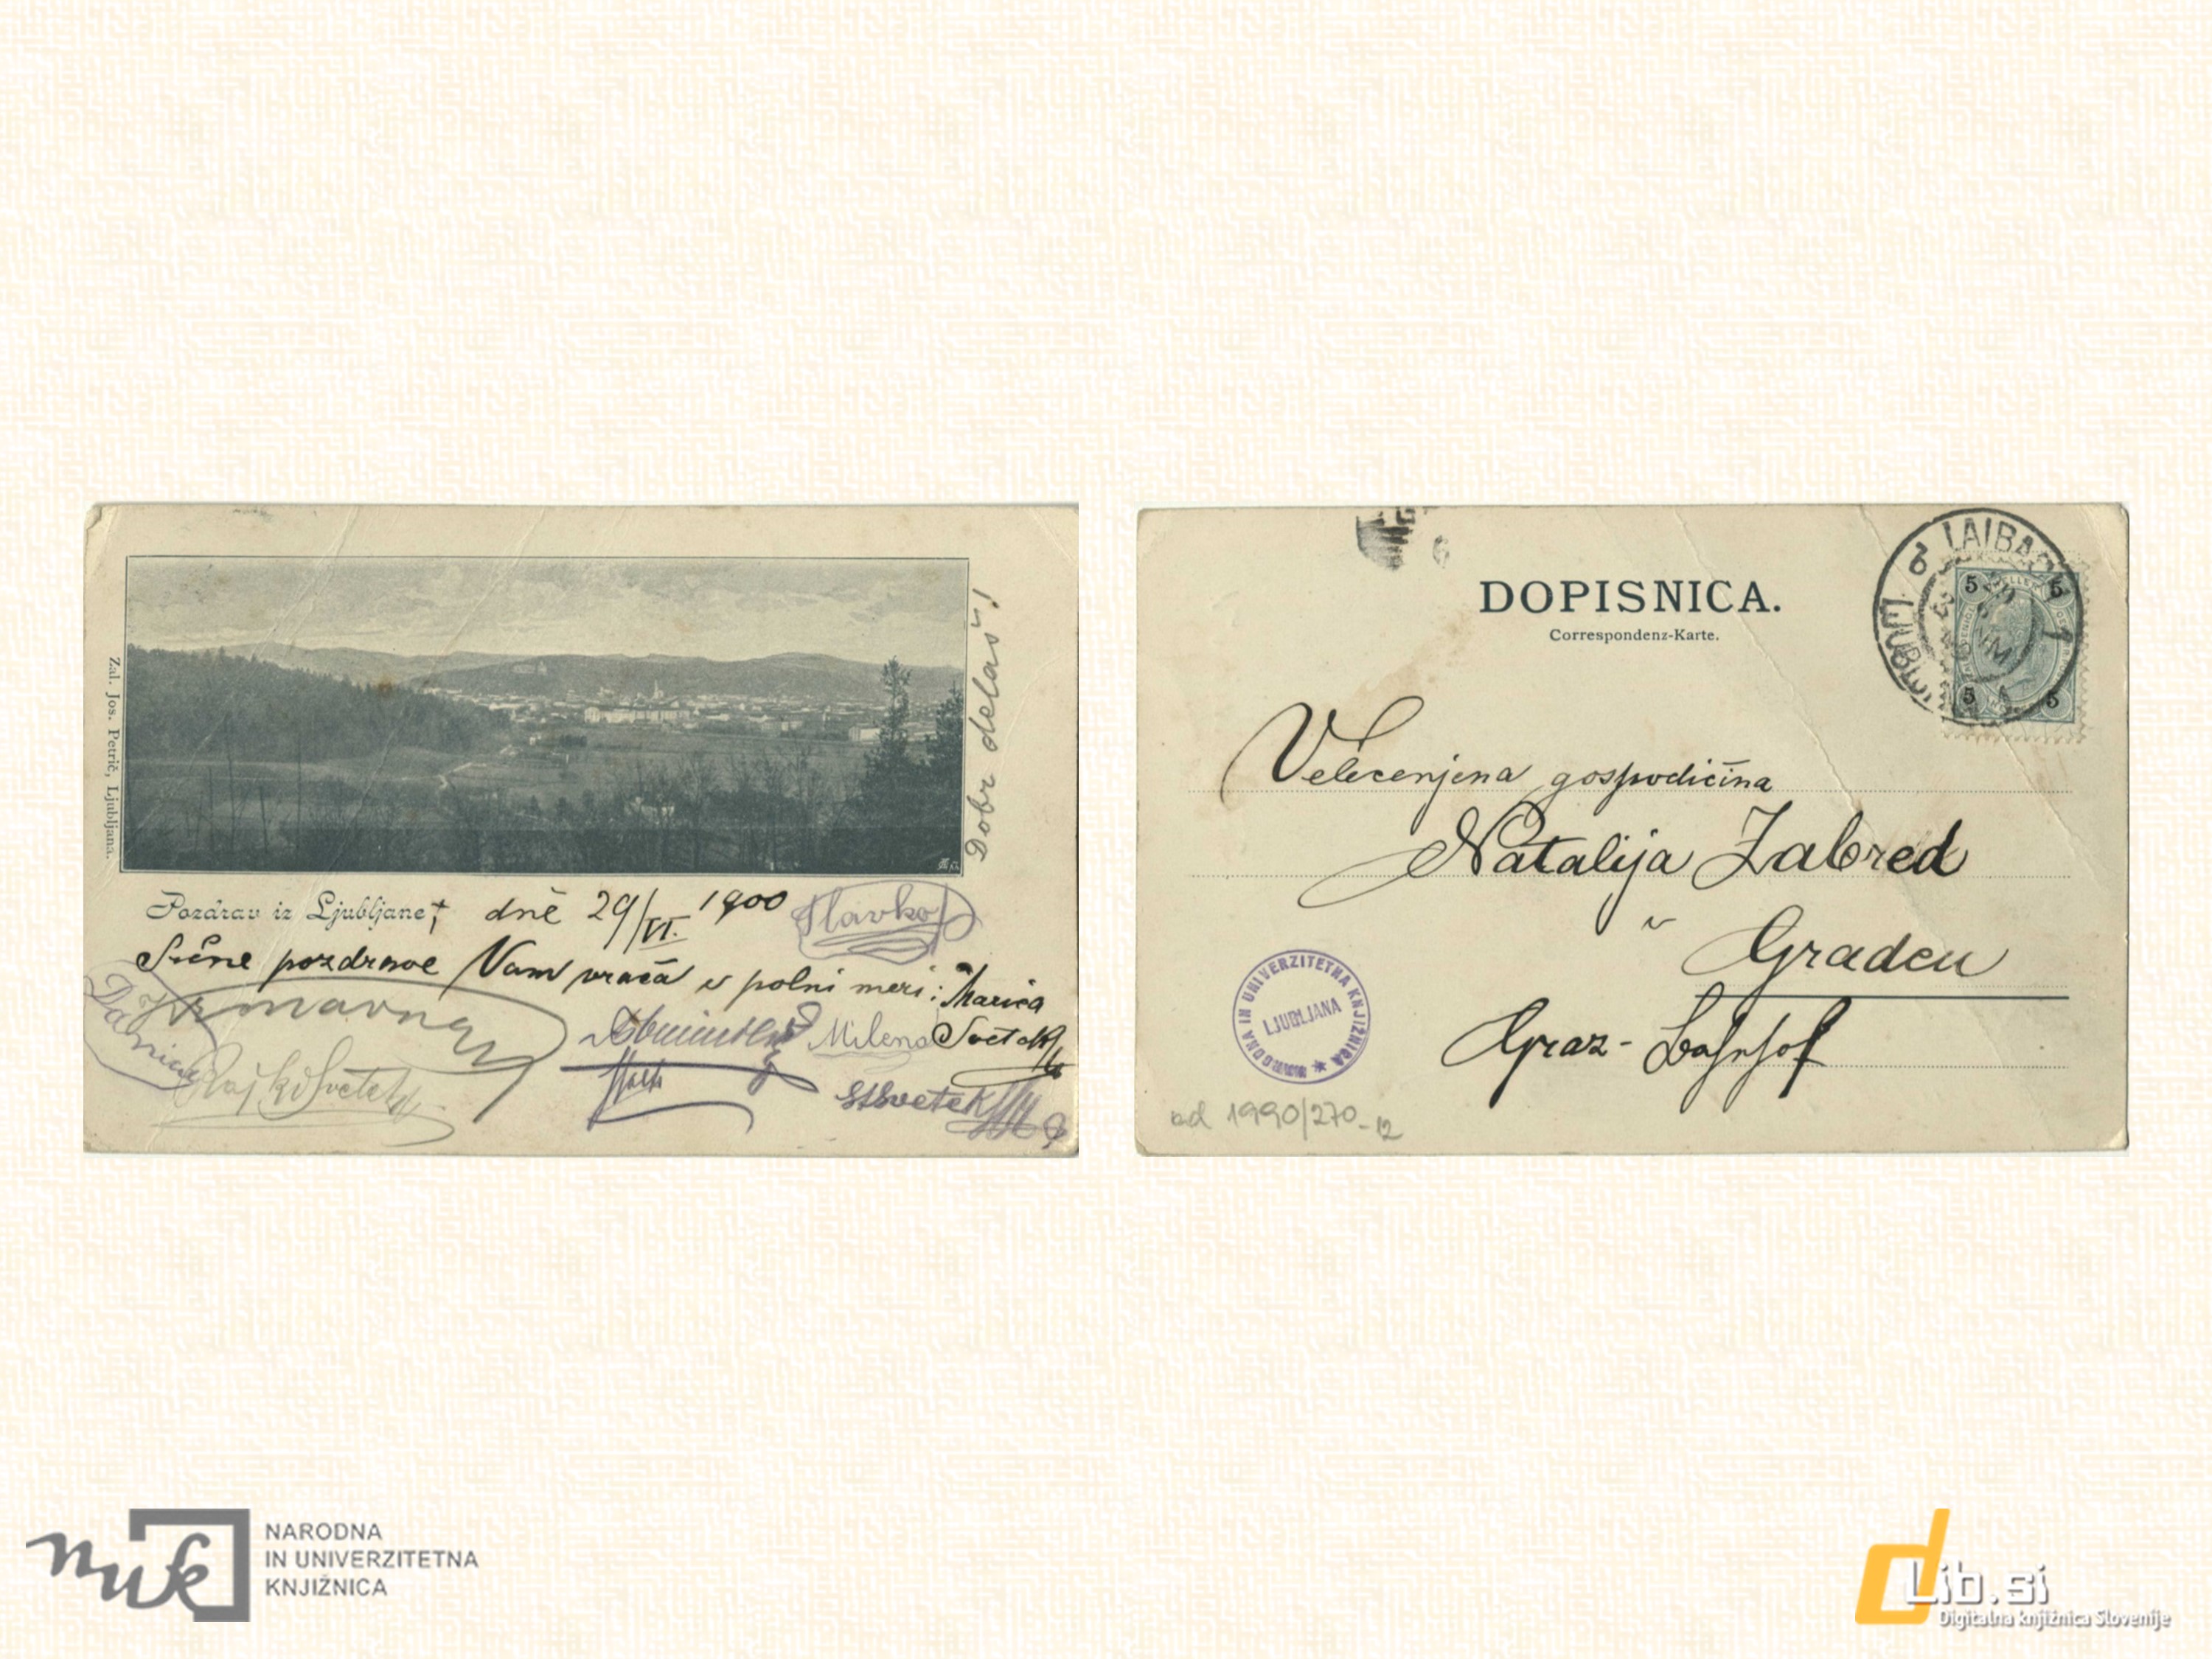 Zal. Jos. Petrič, Ljubljana.
Dobr delaš!
Pozdrav iz Ljubljane, dné 29/VI. 1900
Slavko
Srčne pozdrave Vam vrača v polni meri: Marica
Svetek
Danica
Milena
Rajko Svetek
Svetek
DOPISNICA.
Correspondenz-Karte.
LAIBACH
LJUBLJANA
5 5
5 5
Velecenjena gospodičina
Natalija Zabred
v Gradcu
Graz-Bahnhof
NARODNA IN UNIVERZITETNA KNJIŽNICA
LJUBLJANA
1990/270-12
nuk
NARODNA
IN UNIVERZITETNA
KNJIŽNICA
dLib.si
Digitalna knjižnica Slovenije